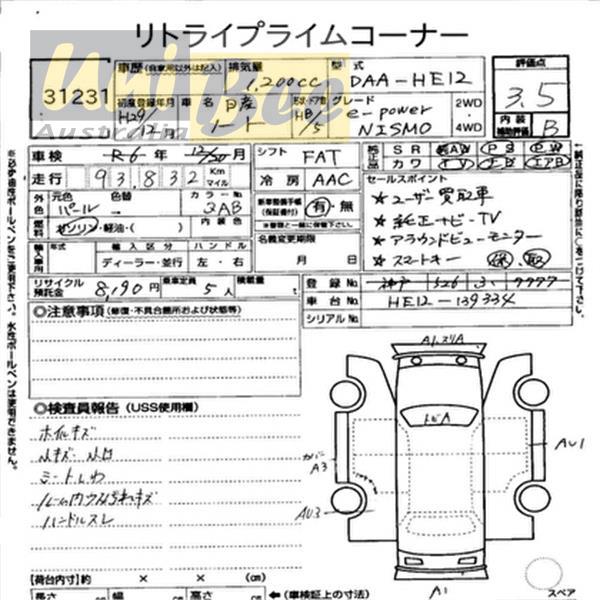 リトライプライムコーナー
UniBee
Australia
31231
車歴 (自家用以外は記入) 排気量 1,200cc 型式 DAA-HE12 評価点 3.5
初度登録年月 H29/12月 車名 日産 ノート 形状・ドア数 HB/5 グレード e-power NISMO 2WD・4WD 内装補助評価 B
車検 R6年 12/20月 シフト FAT 純正品 SR AW PS PW
走行 93,832 Km マイル 冷房 AAC カワ TV エアB
外色 元色 パール 色替 カラーNo. QAB 内装色 新車整備手帳(保証書付) 有・無
セールスポイント
★ユーザー買取車
★純正ナビ・TV
★アラウンドビューモニター
★スマートキー 保 取
燃料 ガソリン・軽油・( ) ※書類と一緒に保管下さい。
名義変更期限 月 日
輸入車用 年式 輸入区分 ハンドル
ディーラー・並行 左・右
リサイクル預託金 8,190円 乗車定員 5人 積載量
登録No. 神戸 526 7777
車台No. HE12-139334
シリアルNo.
◎注意事項 (修復・不具合箇所および状態等)
◎検査員報告 (USS使用欄)
ホイルキズ
シートしわ
ハンドルスレ
A1
カバーA3
AU1
AU3
A1
【荷台内寸】約 × × (cm)
長さ cm 幅 cm 高さ cm ←(車検証上の寸法)
スペア